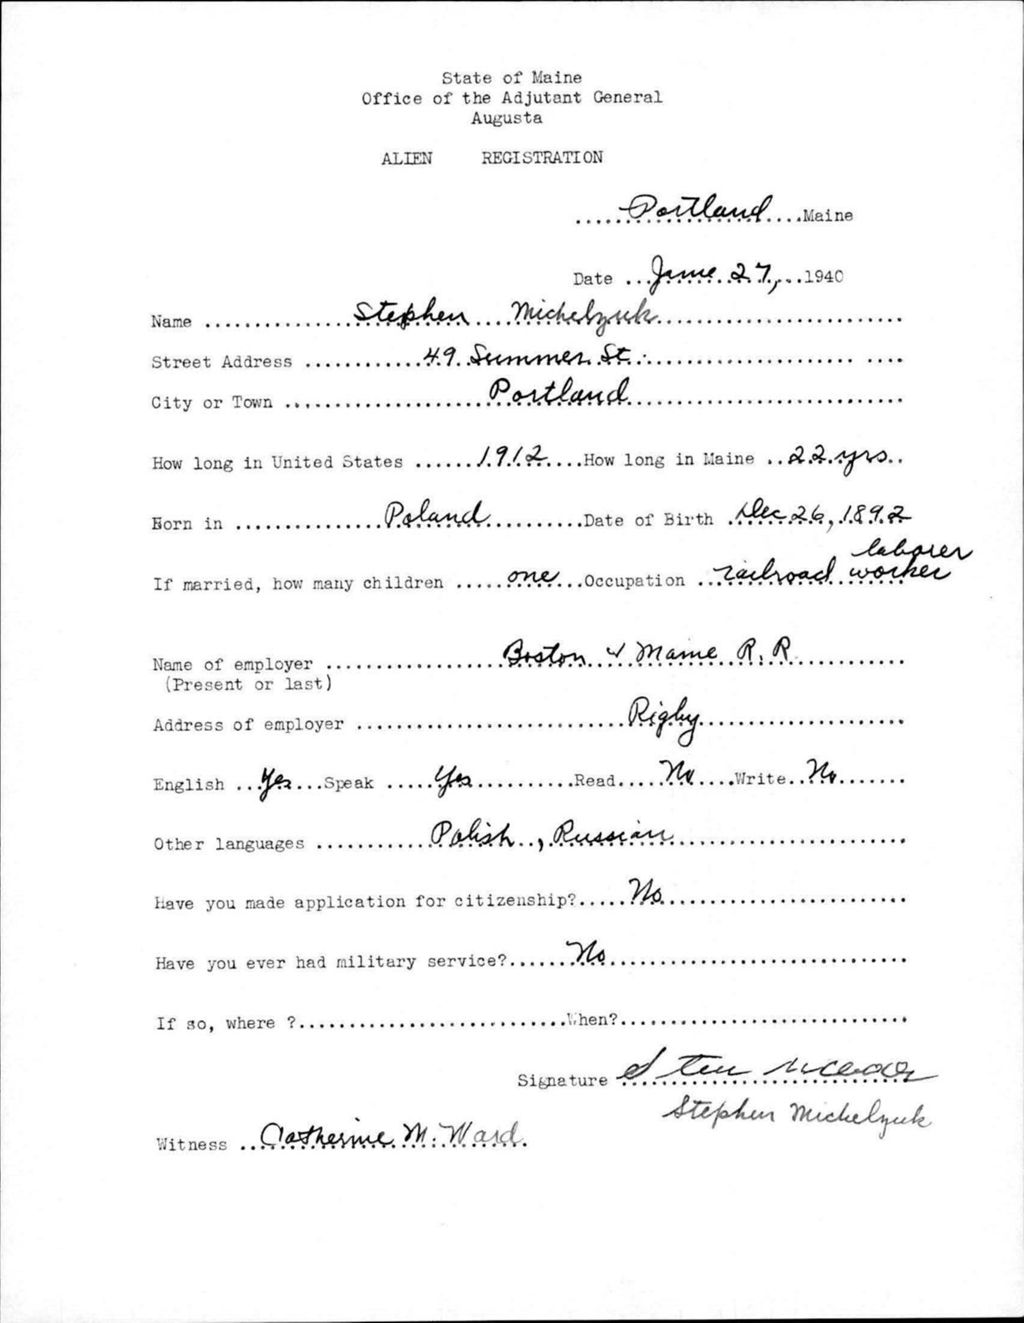 State of Maine
Office of the Adjutant General
Augusta
ALIEN REGISTRATION
.....Portland....Maine
Date ...June 27,...1940
Name ...............Stephen....Michelzuk........................
Street Address ............49 Summer St............................
City or Town ....................Portland...........................
How long in United States ......1912....How long in Maine ..22 yrs..
Born in ...............Poland.........Date of Birth .Dec 26, 1892
laborer
If married, how many children .....one...Occupation ..railroad worker
Name of employer .................Boston & Maine R.R...........
(Present or last)
Address of employer ..........................Rigby....................
English ..Yes...Speak .....Yes..........Read....No....Write..No.......
Other languages ...........Polish, Russian.......................
Have you made application for citizenship?.....No........................
Have you ever had military service?......No.............................
If so, where ?..........................When?............................
Signature
Stephen Michelzuk
Witness ..Catherine M. Ward.